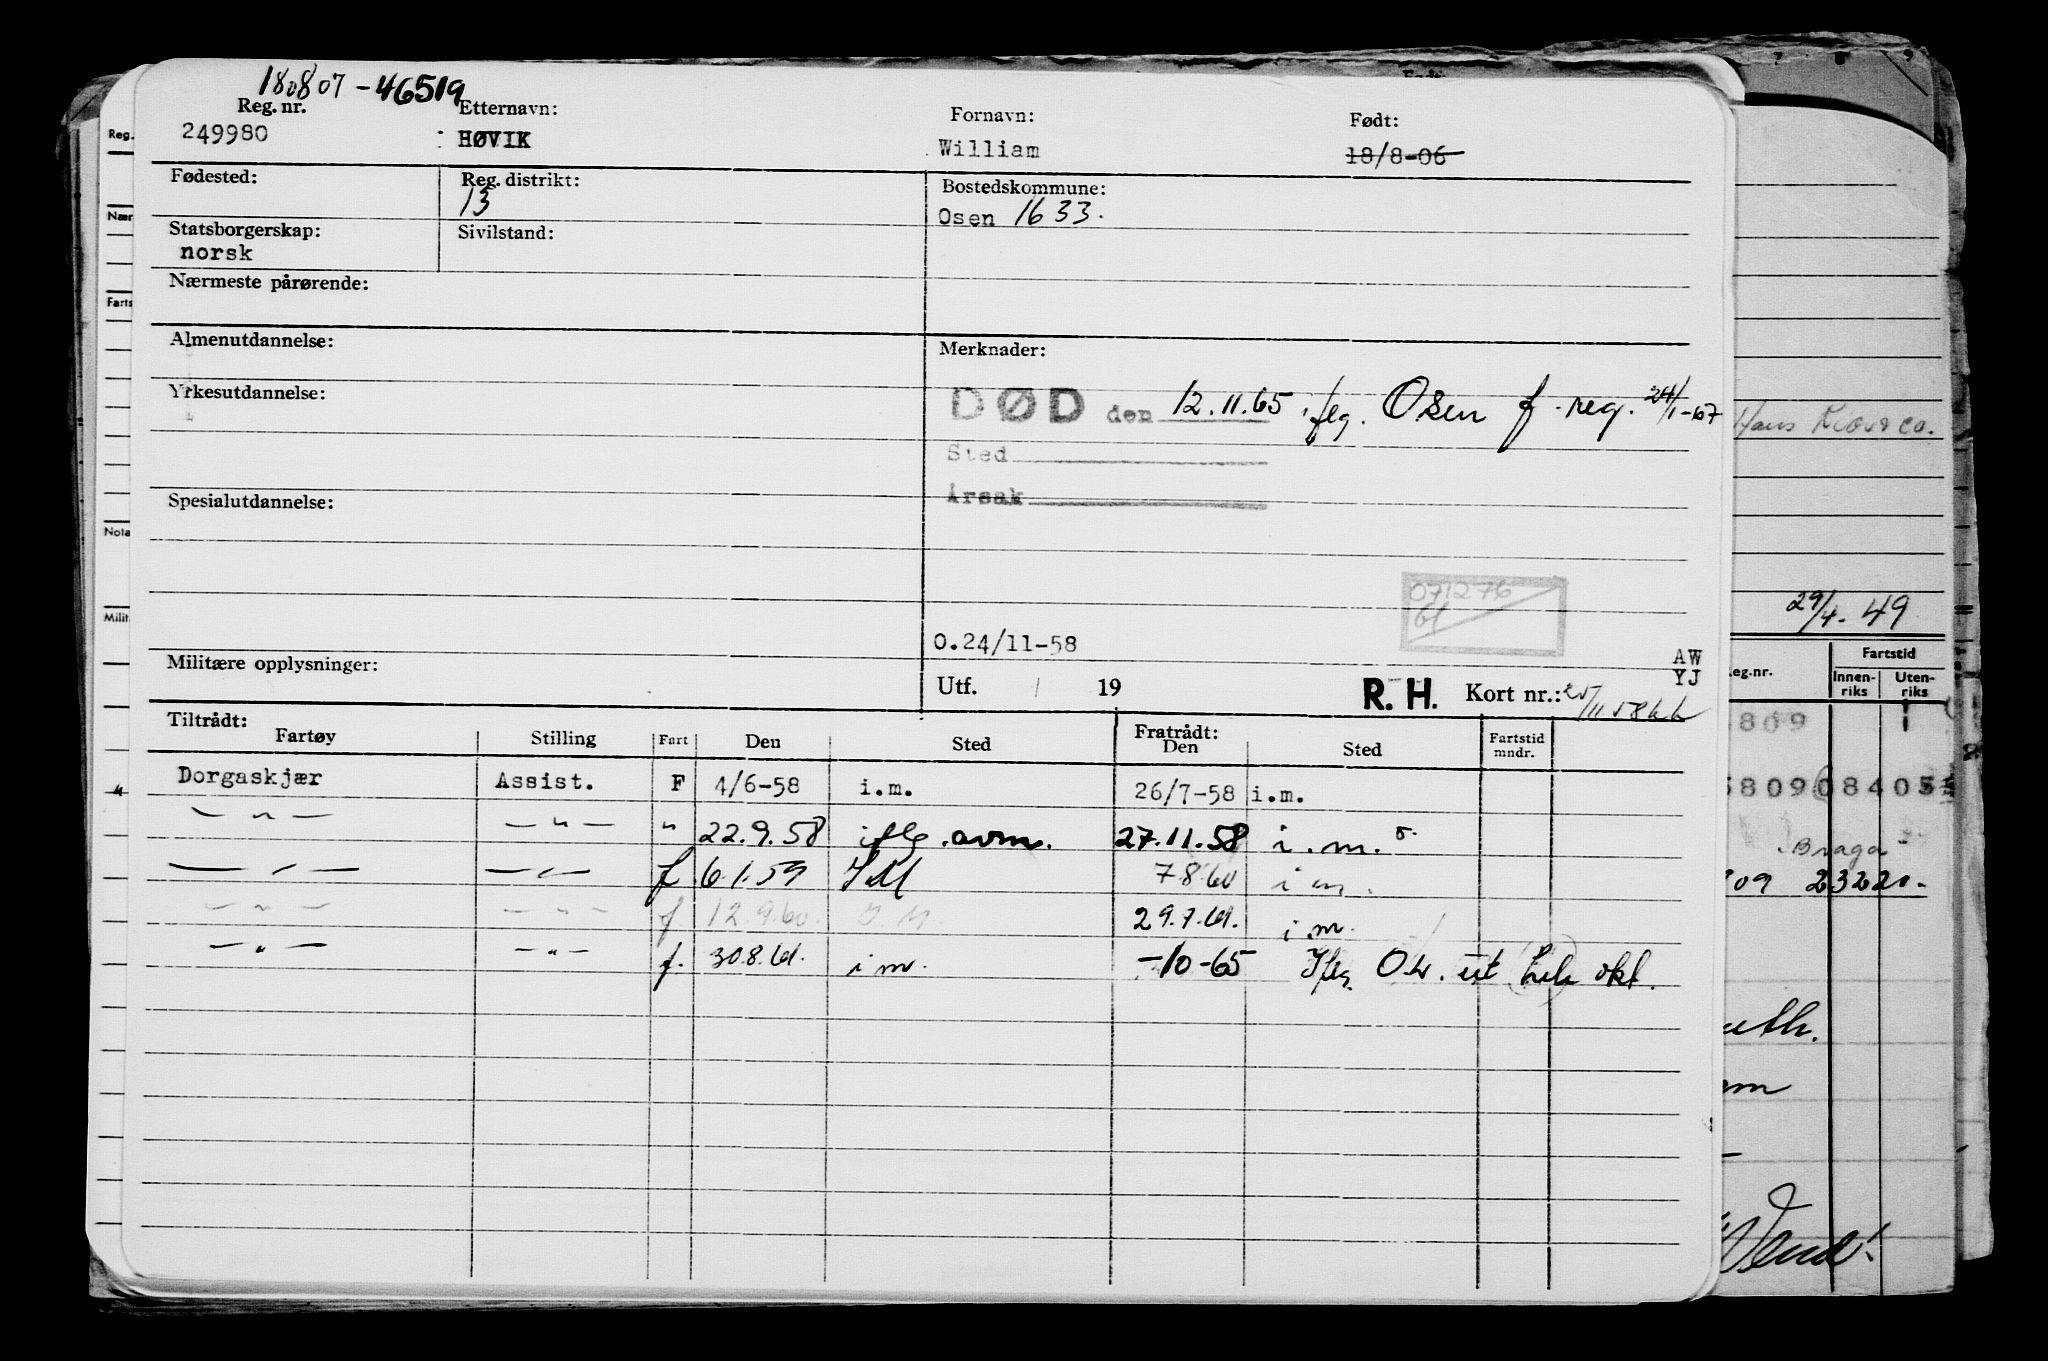 180807-46519
Reg. nr. Etternavn: Fornavn: Født:
249980 HØVIK William 18/8-06
Fødested: Reg. distrikt: Bostedskommune:
13 Osen 1633.
Statsborgerskap: Sivilstand:
norsk
Nærmeste pårørende:
Almenutdannelse: Merknader:
Yrkesutdannelse: DØD den 12.11.65 iflg. Osen f. reg. 24/1-67
Sted
Årsak
Spesialutdannelse:
071276
61
O.24/11-58
Militære opplysninger: AW
Utf. / 19 R. H. Kort nr.: YJ
Tiltrådt: Fratrådt:
Fartøy Stilling Fart Den Sted Den Sted Fartstid mndr.
Dorgaskjær Assist. F 4/6-58 i.m. 26/7-58 i.m.
— " — — " — " 22.9.58 iflg. avm. 27.11.58 i.m.
— " — — " — f 6.1.59 IM 7.8.60 i m.
— " — — " — f 12.9.60. I M. 29.7.61. i m.
— " — — " — f. 30.8.61. i m. -10-65 Iflg. O.k. ut hele okt.
Reg.
Nær
Farts
Nota
Milit
Hans
29/4-49
eg.nr. Fartstid
Innen-riks Uten-riks
809
5809 08405
Braga
809 23220-